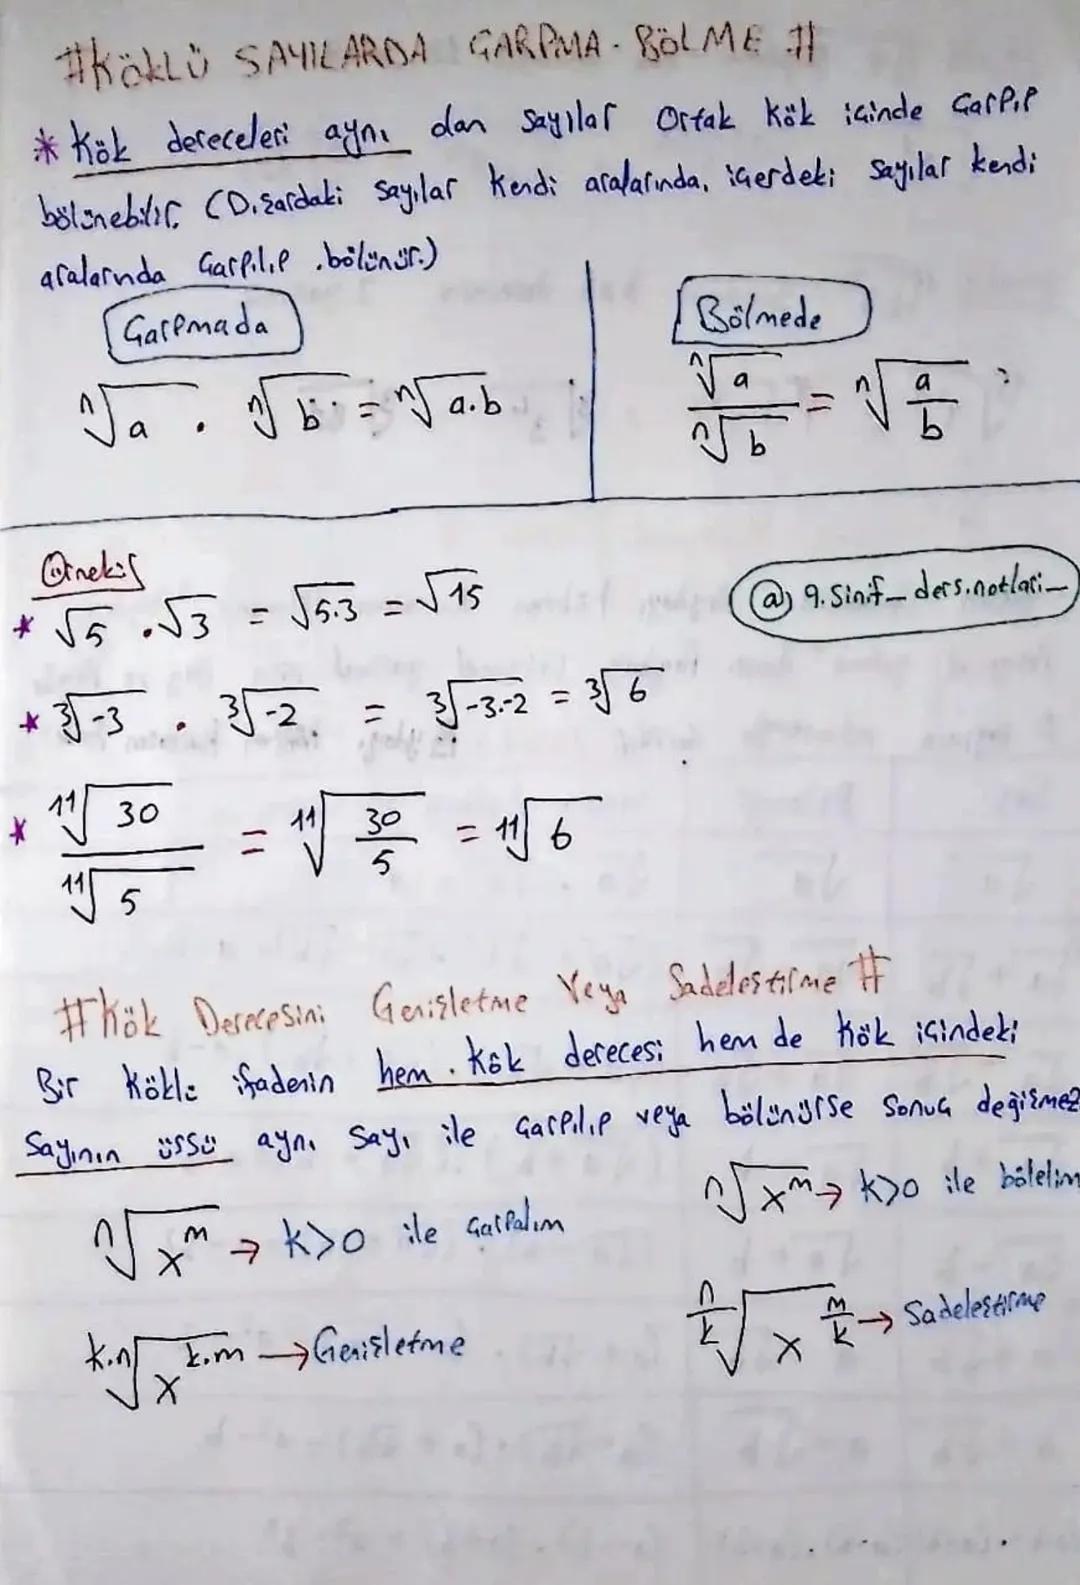 #KÖKLÜ SAYILARDA ÇARPMA - BÖLME #
* Kök dereceleri aynı olan sayılar Ortak kök içinde Çarpıp
bölünebilir. (Dışardaki sayılar kendi aralarında, içerdeki sayılar kendi
aralarında Çarpılıp bölünür.)
Çarpmada
ⁿ√a . ⁿ√b = ⁿ√a.b
Bölmede
ⁿ√a / ⁿ√b = ⁿ√(a/b)
Örnekiş
@) 9.Sinif_ders.notlari_
* √5 . √3 = √5.3 = √15
* ³√-3 . ³√-2 = ³√-3.-2 = ³√6
* ¹¹√30 / ¹¹√5 = ¹¹√(30/5) = ¹¹√6
#Kök Derecesini Genişletme Veya Sadeleştirme #
Bir Köklü ifadenin hem kök derecesi hem de kök içindeki
Sayının üssü aynı sayı ile Çarpılıp veya bölünürse sonuç değişmez
ⁿ√xᵐ → k>0 ile Çarpalım
k.n√x^k.m → Genişletme
ⁿ√xᵐ → k>0 ile bölelim
n/k√x^m/k → Sadeleştirme